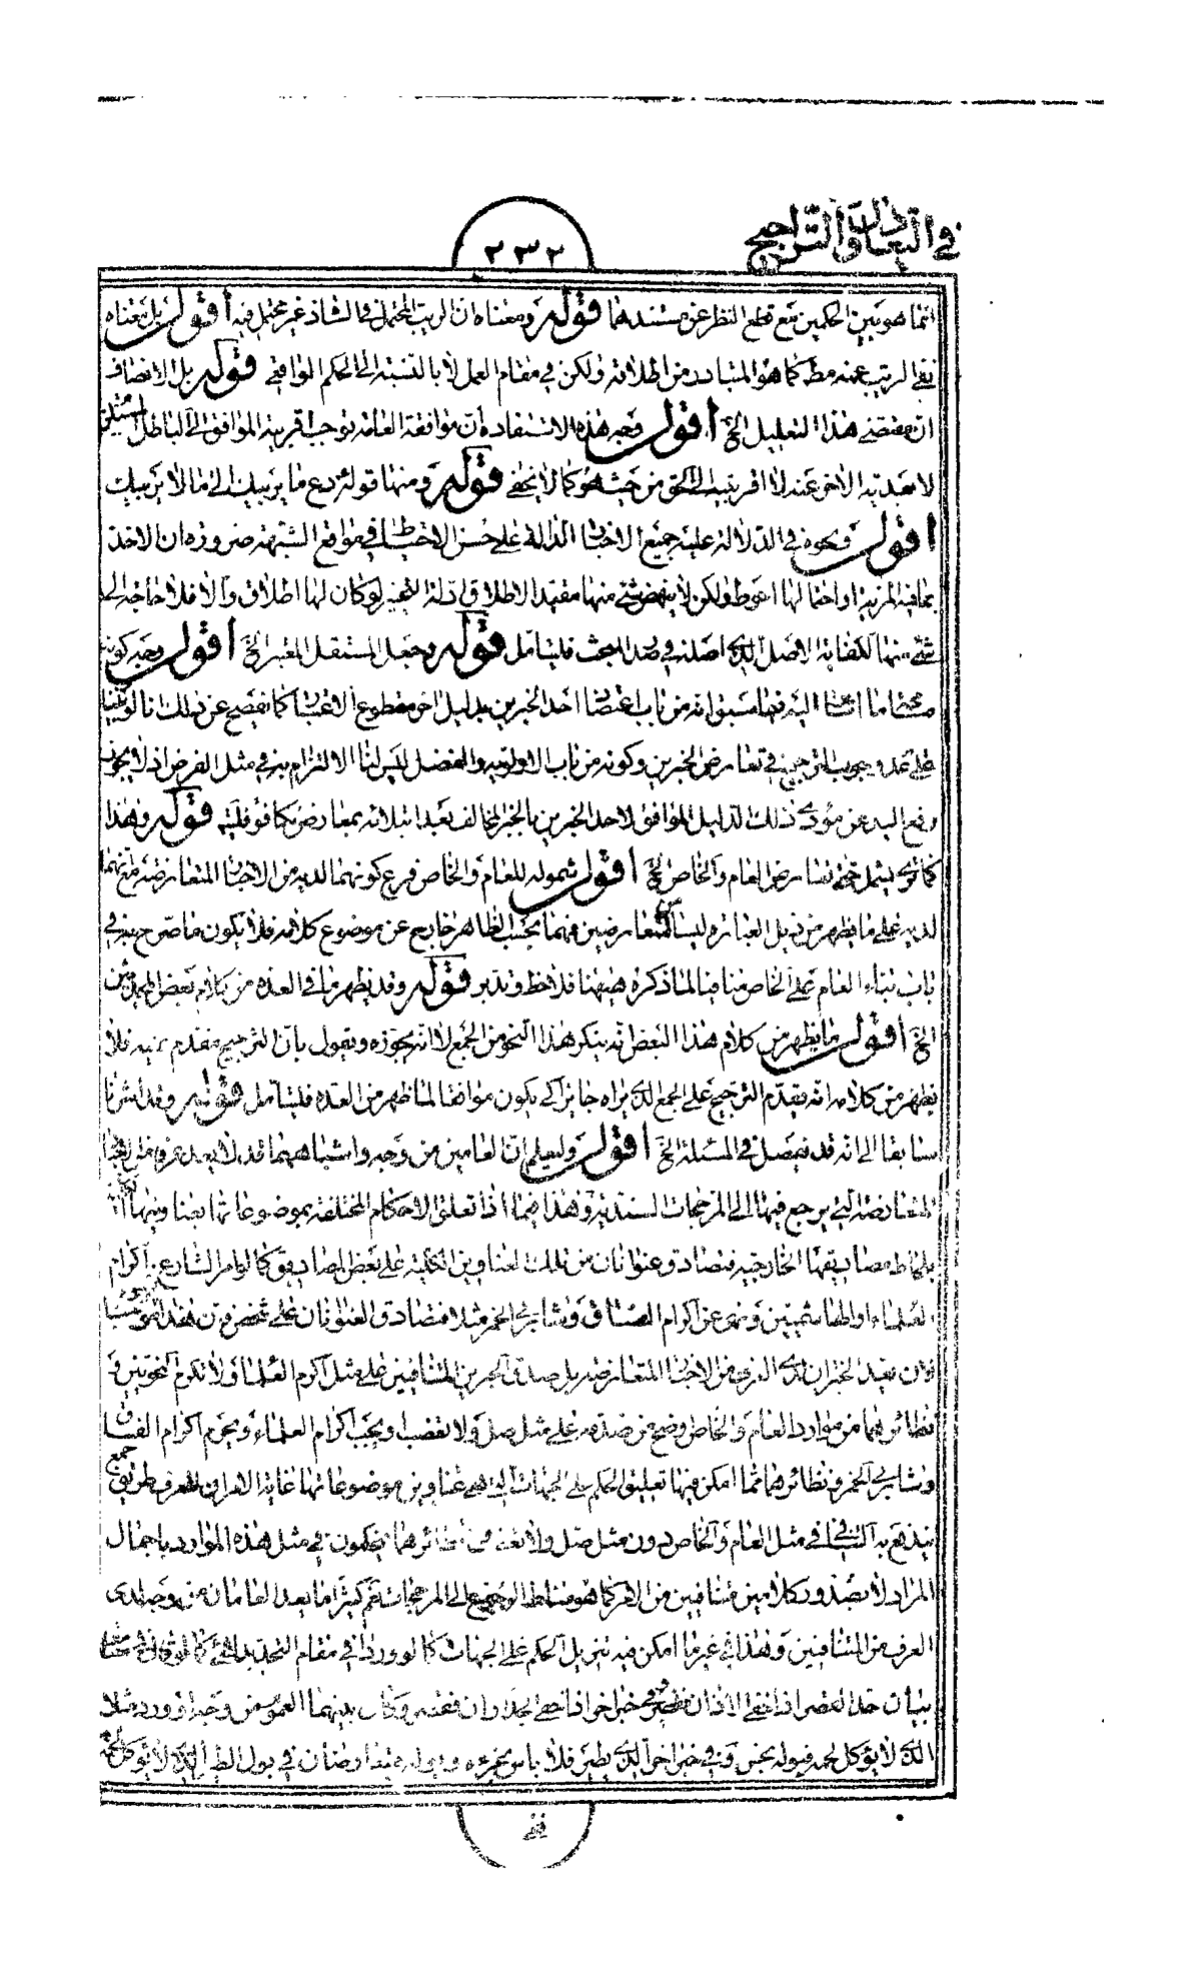 في التعادل والتراجيح
٢٣٢
انما هو بين الحكمين مع قطع النظر عن مستندهما قوله ومعناه ان الريب المحتمل في الشاذ غير محتمل فيه اقول بل معناه
نفي الريب عنه مط كما هو المتبادر من اطلاقه ولكن في مقام العمل لا بالنسبة الى الحكم الواقعي قوله بل الانصاف
ان مقتضى هذا التعليل الخ اقول وجه هذه الاستفادة ان موافقة العامة توجب اقربية الموافق الى الباطل المستلزم
لابعدية الاخر عنه لا اقربيته الى الحق من حيث هو كما لا يخفى قوله ومنها قوله دع ما يريبك الى ما لا يريبك
اقول ونحوه في الدلالة عليه جميع الاخبار الدالة على حسن الاحتياط في مواقع الشبهة ضرورة ان الاخذ
بما فيه المزية او احتمالها احوط ولكن لا ينهض شئ منها مقيدا لاطلاق ادلة التخيير لو كان لها اطلاق والا فلا حاجة الى
شئ منها لكفاية الاصل الذي اصلنا في صدر المبحث فليتامل قوله وجعل المستقل المعتبر الخ اقول وجه كونه
اليه فيما سبق انه من باب اعتضاد احد الخبرين بدليل اخر مقطوع الاعتبار كما يفصح عن ذلك انا لو بنينا
على عدم وجوب الترجيح في تعارض الخبرين وكونه من باب الاولوية والفضل ليس لنا الالتزام به في مثل الفرض اذ لا يجوز
رفع اليد عن مؤدى ذلك الدليل الموافق لاحد الخبرين بالخبر المخالف بعد ابتلائه بمعارض مكافؤ فليتد قوله وهذا
كما ترى يشمل حتى تعارض العام والخاص الخ اقول شموله للعام والخاص فرع كونهما لديه من الاخبار المتعارضة مع انهما
لديه على ما يظهر من ذيل العبارة ليسا بمتعارضين فهما بحسب الظاهر خارج عن موضوع كلامه فلا يكون ما صرح به في
باب بناء العام على الخاص منافيا لما ذكره هيهنا فلاحظ وتدبر قوله وقد يظهر ما في العدة من كلام بعض المحدثين
الخ اقول ما يظهر من كلام هذا البعض انه ينكر هذا النحو من الجمع لا انه يجوزه ويقول بان الترجيح مقدم عليه فلا
يظهر من كلامه انه يقدم الترجيح على الجمع الذي يراه جائزا كي يكون موافقا لما ظهر من العدة فليتامل قوله وقد اشرنا
سابقا الى انه قد يفصل في المسئلة الخ اقول وليعلم ان العامين من وجه واشباههما قد لا يعد عرفا من الاخبار
المتعارضة التي يرجع فيها الى المرجحات السندية وهذا فيما اذا تعلق الاحكام المختلفة بموضوعاتها
بلحاظ مصاديقها الخارجية فتصادق عنوانان من تلك العناوين الكلية على بعض المصاديق كما لو امر الشارع باكرام
العلماء او الهاشميين ونهى عن اكرام الفساق وشارب الخمر مثلا فتصادق العنوانان على شخص
الخبران لدى العرف من الاخبار المتعارضة بل صدق الخبرين المتنافيين على مثل اكرم العلماء ولا تكرم النحويين و
نظائرهما من موارد العام والخاص اوضح من صدقه على مثل صل ولا تغصب ويجب اكرام العلماء ويحرم اكرام الفساق
وشارب الخمر ونظائرهما مما امكن فيها تعليق الحكم على الجهات التي هي عناوين موضوعاتها غاية الامر ان للعرف طريق جمع
يندفع به التنافي في مثل العام والخاص دون مثل صل ولا تغصب ونظائرهما فيحكمون في مثل هذه الموارد باجمال
المراد لا بصدور كلامين متنافيين من الامر كما هو مناط الرجوع الى المرجحات نعم كثيرا ما يعد العامان من وجه لدى
العرف من المتنافيين وهذا في غير ما امكن فيه تنزيل الحكم على الجهات كما لو وردا في مقام التحديد
بيان حد القصر اذا خفي الاذان فقصر وفي خبر اخر اذا خفي الجدران فقصر وكان بينهما العموم من وجه او ورد مثلا
الذي لا يؤكل لحمه فبوله نجس وفي خبر اخر الذي يطير فلا باس بخرءه وبوله فيتعارضان في بول الطير الذي لا يؤكل لحمه